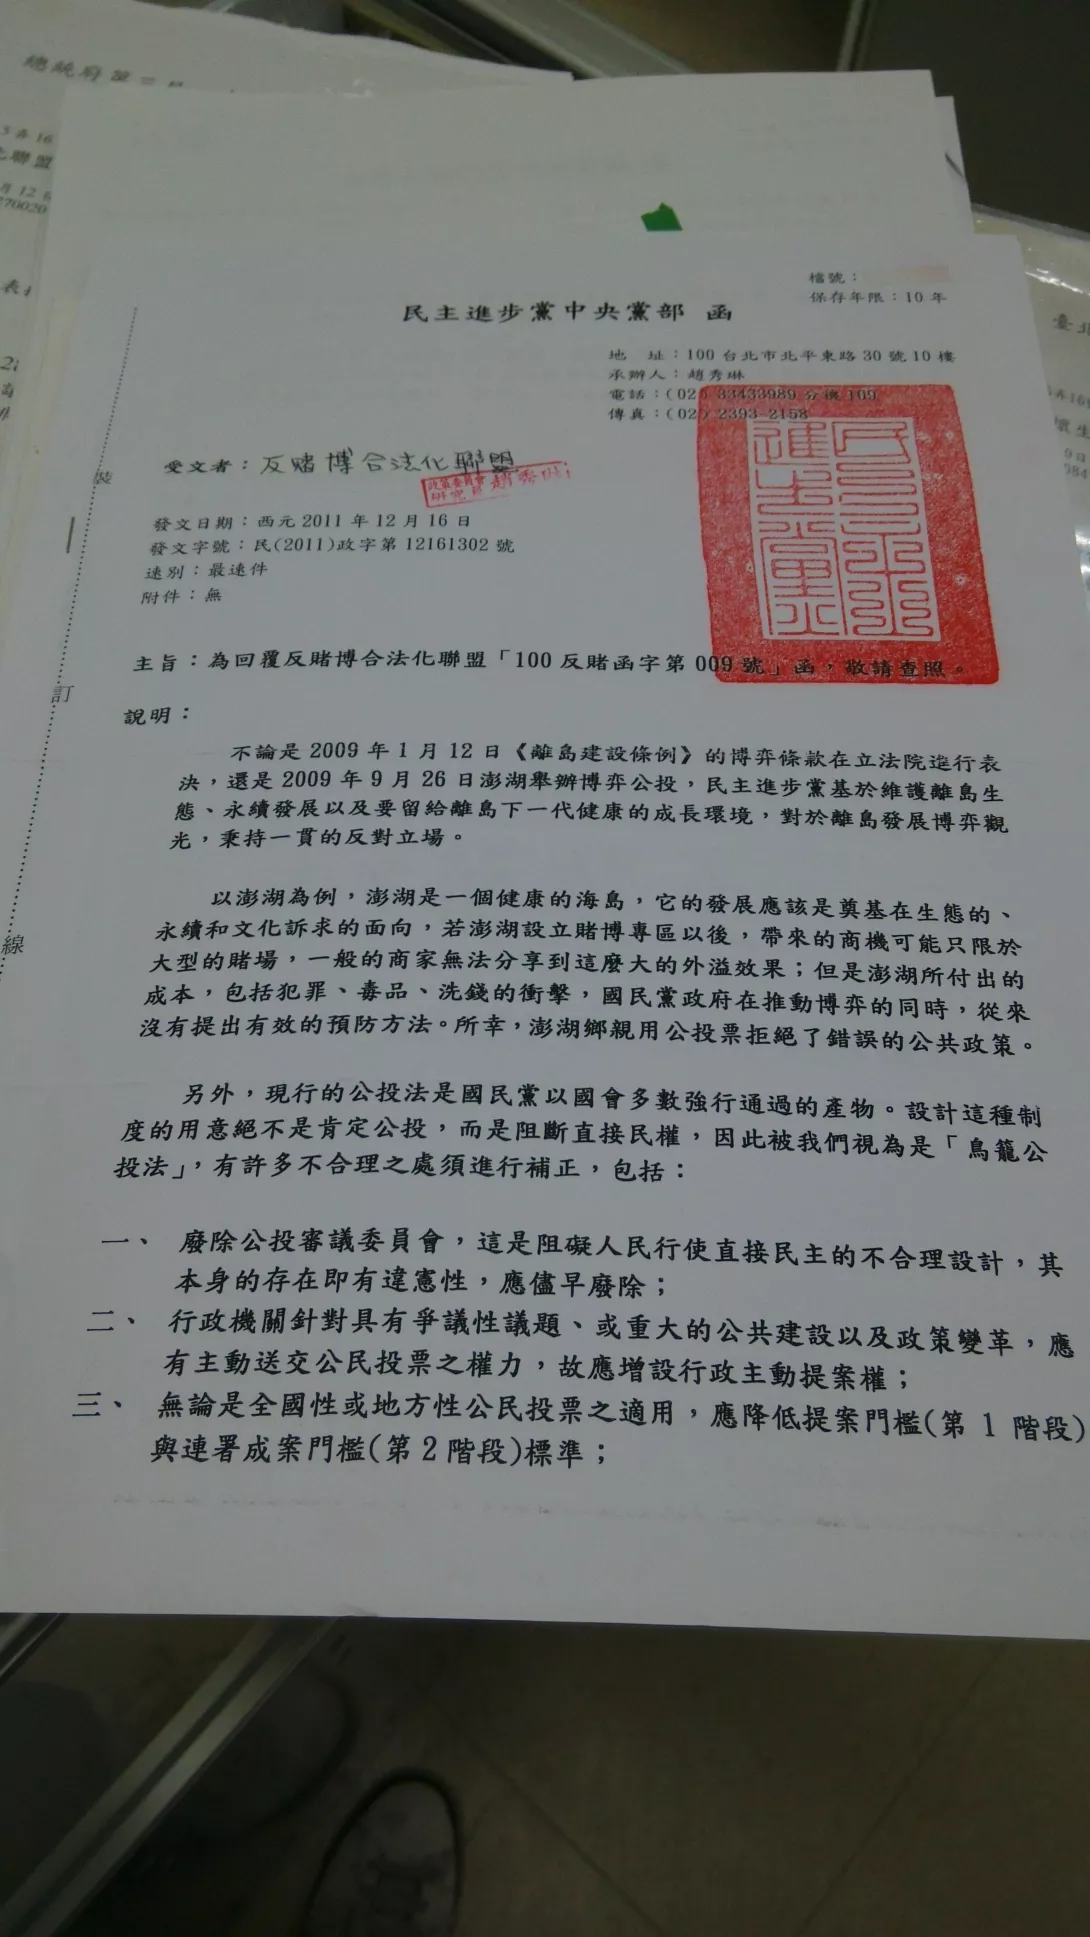 總統府第三
檔號：
保存年限：10年
民主進步黨中央黨部 函
地 址：100台北市北平東路30號10樓
承辦人：趙秀琳
電話：(02) 33433989分機109
傳真：(02) 2393-2158
受文者：反賭博合法化聯盟
發文日期：西元2011年12月16日
發文字號：民(2011)政字第12161302號
速別：最速件
附件：無
主旨：為回覆反賭博合法化聯盟「100反賭函字第009號」函，敬請查照。
說明：
不論是2009年1月12日《離島建設條例》的博弈條款在立法院進行表
決，還是2009年9月26日澎湖舉辦博弈公投，民主進步黨基於維護離島生
態、永續發展以及要留給離島下一代健康的成長環境，對於離島發展博弈觀
光，秉持一貫的反對立場。
以澎湖為例，澎湖是一個健康的海島，它的發展應該是奠基在生態的、
永續和文化訴求的面向，若澎湖設立賭博專區以後，帶來的商機可能只限於
大型的賭場，一般的商家無法分享到這麼大的外溢效果；但是澎湖所付出的
成本，包括犯罪、毒品、洗錢的衝擊，國民黨政府在推動博弈的同時，從來
沒有提出有效的預防方法。所幸，澎湖鄉親用公投票拒絕了錯誤的公共政策。
另外，現行的公投法是國民黨以國會多數強行通過的產物。設計這種制
度的用意絕不是肯定公投，而是阻斷直接民權，因此被我們視為是「鳥籠公
投法」，有許多不合理之處須進行補正，包括：
一、 廢除公投審議委員會，這是阻礙人民行使直接民主的不合理設計，其
本身的存在即有違憲性，應儘早廢除；
二、 行政機關針對具有爭議性議題、或重大的公共建設以及政策變革，應
有主動送交公民投票之權力，故應增設行政主動提案權；
三、 無論是全國性或地方性公民投票之適用，應降低提案門檻(第 1 階段)
與連署成案門檻(第2階段)標準；
裝
訂
線